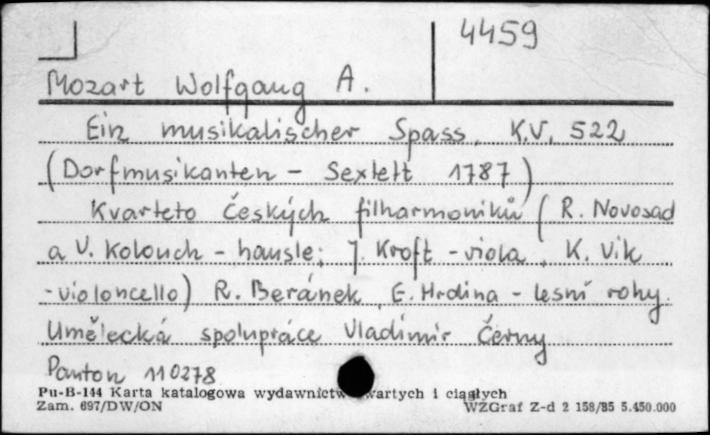 4459
Mozart Wolfgang A.
Ein musikalischer Spass, K.V. 522
(Dorfmusikanten - Sextett 1787)
Kvarteto Českých filharmoniků (R. Novosad
a V. Kolouch - housle; J. Kroft - viola, K. Vik
- violoncello) R. Beránek, E. Hrdina - lesní rohy.
Umělecká spolupráce Vladimir Černy
Panton 110278
Pu-B-144 Karta katalogowa wydawnictw wartych i ciągłych
Zam. 697/DW/ON WZGraf Z-d 2 158/85 5.450.000